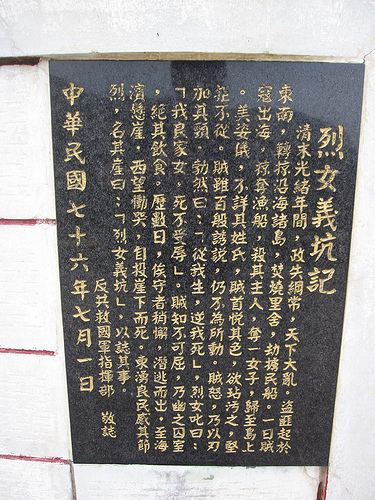 烈女義坑記
清末光緒年間，政失綱常，天下大亂。盜匪起於
東南，轉掠沿海諸島，焚燒里舍，劫擄民船。一日賊
寇出海，掠奪漁船，殺其主人，奪一女子，歸至島上
。美姿儀，不詳其姓氏，賊首悅其色，欲玷污之，堅
拒不從。賊雖百般誘說，仍不為所動。賊怒，乃以刃
加其頸，勃然曰：「從我生，逆我死」，烈女叱曰：
「我良家女，死不受辱」。賊知不可屈，乃幽之囚室
，絕其飲食。歷數日，俟守者稍懈，潛逃而出，至海
濱懸崖，西望慟哭，自投崖下而死。東湧良民感其節
烈，名其崖曰：「烈女義坑」，以誌其事。
反共救國軍指揮部 敬誌
中華民國七十六年七月一日